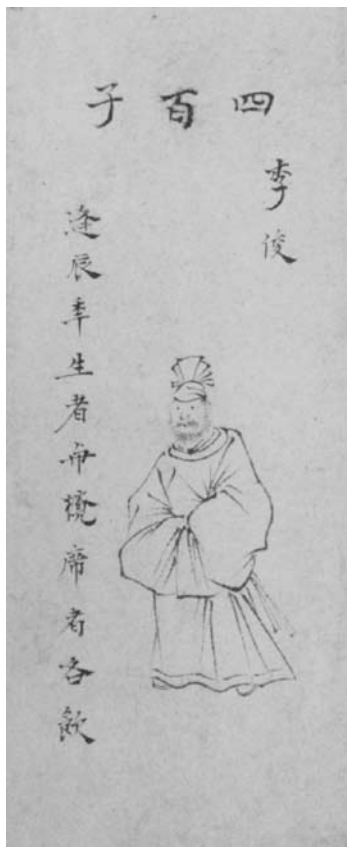 四百子
李俊
逢辰年生者并攙席者各飲